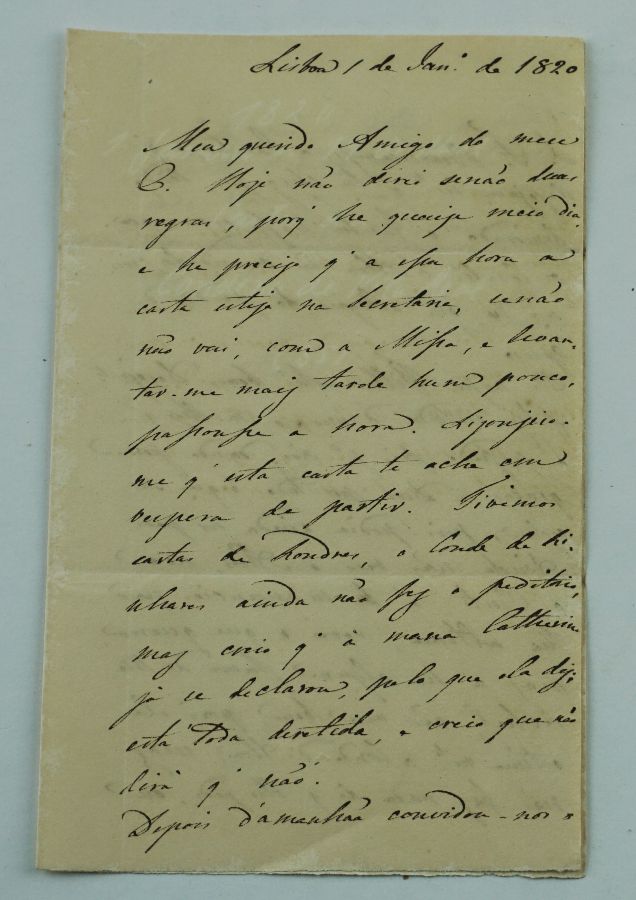 Lisboa 1 de Jan.º de 1820
Meu querido Amigo do meu
C. Hoje não direi senão duas
regras, porq̃ he quasize meio dia,
e he preciso q̃ a essa hora a
carta esteja na Secretaria, senão
não vai, com a Missa, e levan-
tar-me mais tarde hum pouco,
passouse a hora. Lizonjeio-
me q̃ esta carta te ache em
vespera de partir. Tivemos
cartas de Londres, o Conde de Li-
nhares ainda não fez o peditorio,
mas creio q̃ à mana Catherina
já se declarou, pelo que ella diz;
está toda derretida, e creio que não
dirá q̃ não.
Depois d'amanhãa convidou-nos